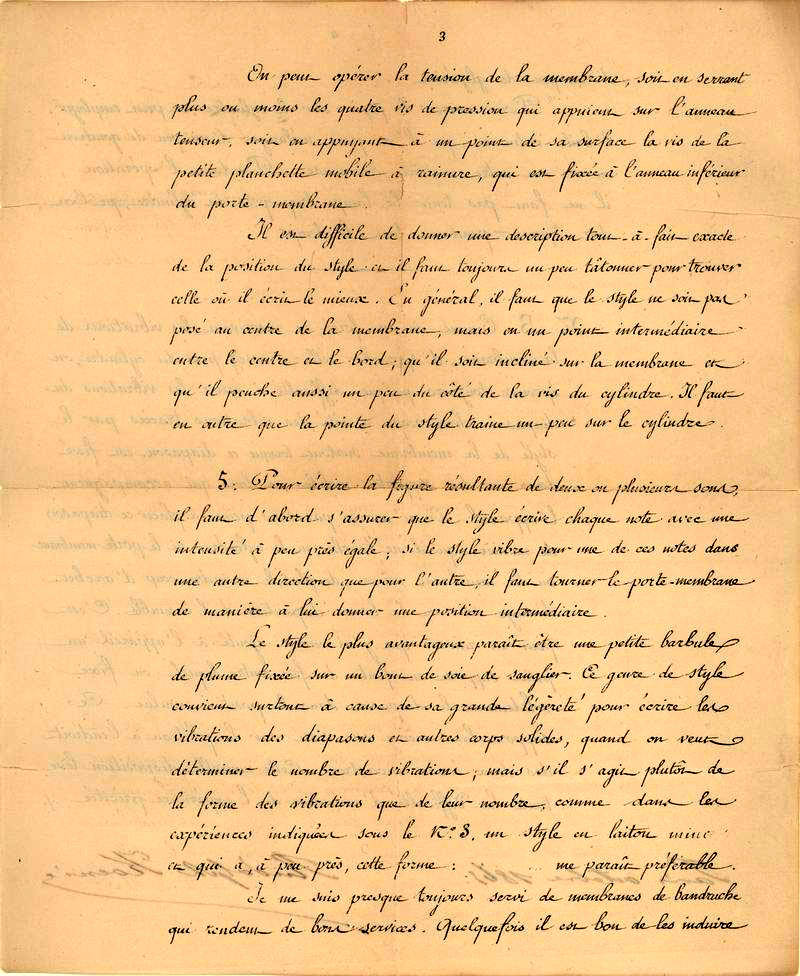 3
On peut opérer la tension de la membrane, soit en serrant
plus ou moins les quatre vis de pression qui appuient sur l'anneau
tenseur, soit en appuyant à un point de sa surface la vis de la
petite planchette mobile à rainure, qui est fixée à l'anneau inférieur
du porte-membrane.
Il est difficile de donner une description tout-à-fait exacte
de la position du style et il faut toujours un peu tâtonner pour trouver
celle où il écrit le mieux. En général, il faut que le style ne soit pas
posé au centre de la membrane, mais en un point intermédiaire
entre le centre et le bord; qu'il soit incliné sur la membrane et
qu'il penche aussi un peu du côté de la vis du cylindre. Il faut
en outre que la pointe du style traine un peu sur le cylindre.
5. Pour écrire la figure résultante de deux ou plusieurs sons,
il faut d'abord s'assurer que le style écrive chaque note avec une
intensité à peu près égale; si le style vibre pour une de ces notes dans
une autre direction que pour l'autre, il faut tourner le porte-membrane
de manière à lui donner une position intermédiaire.
Le style le plus avantageux paraît être une petite barbule
de plume fixée sur un bout de soie de sanglier. Ce genre de style
convient surtout à cause de sa grande légèreté pour écrire les
vibrations des diapasons et autres corps solides, quand on veut
déterminer le nombre de vibrations; mais s'il s'agit plutôt de
la forme des vibrations que de leur nombre, comme dans les
expériences indiquées sous le No. 3, un style en laiton mince
et qui a, à peu près, cette forme : ... me paraît préférable.
Je me suis presque toujours servi de membranes de baudruche
qui rendent de bons services. Quelquefois il est bon de les induire